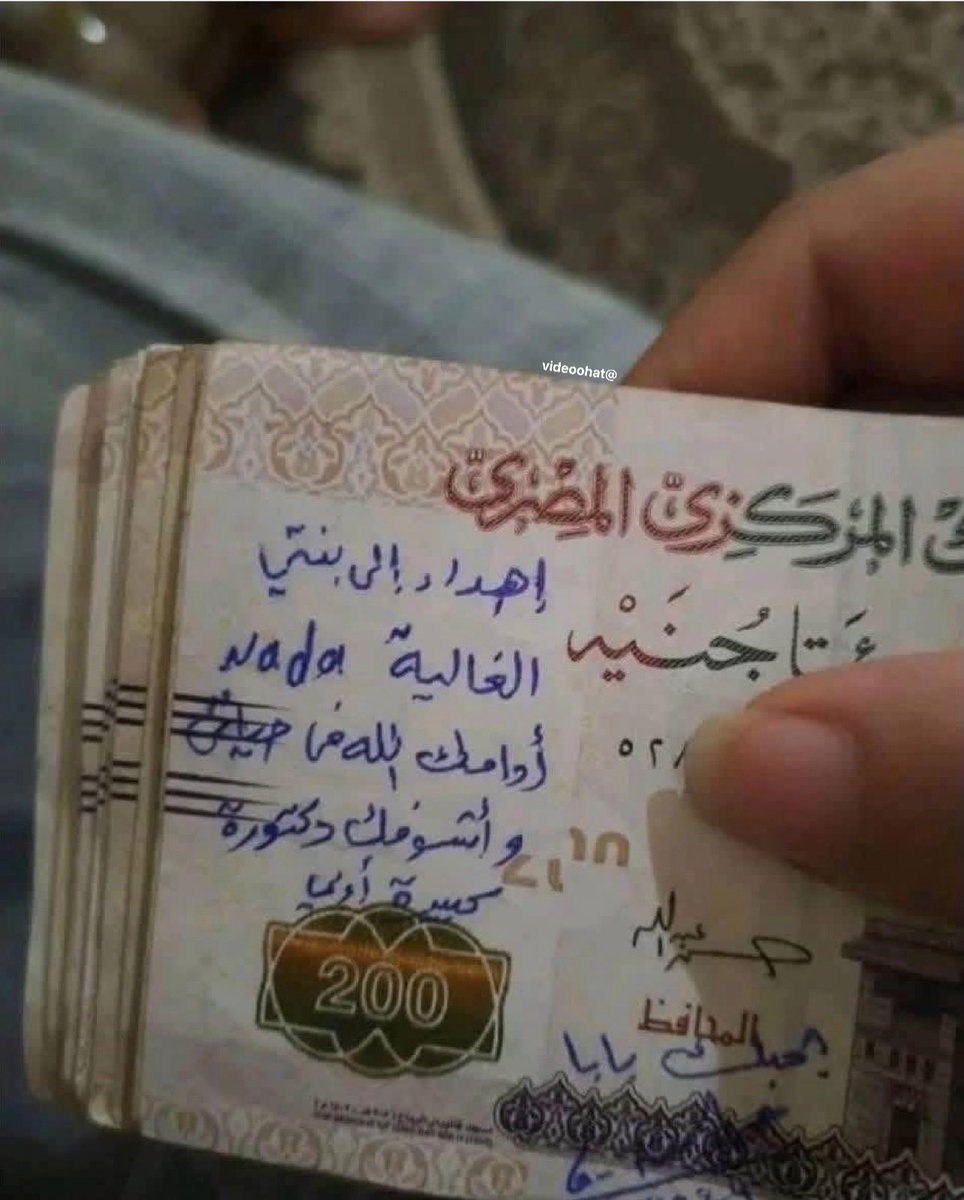 videoohat@
المركزي المصري
جنيه
إهداء إلى بنتي
الغالية Nada
أدامك الله في حياتي
وأشوفك دكتورة
كبيرة أوي
200
المحافظ
بحبك بابا